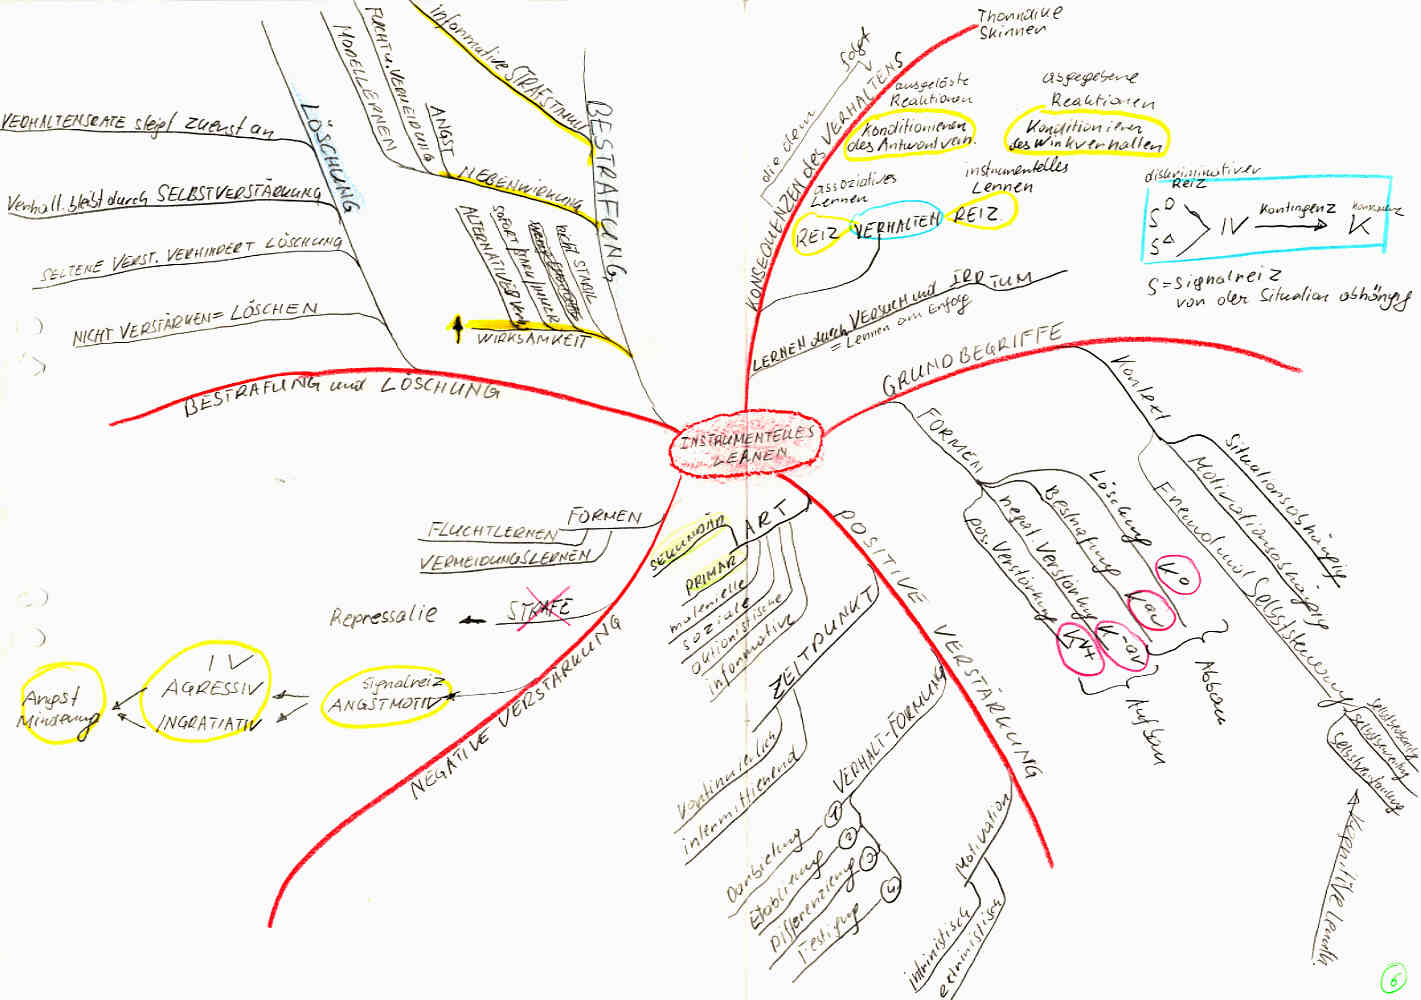 INSTRUMENTELLES
LERNEN
KONSEQUENZEN des VERHALTENS
die dem
folgt
Thorndike
Skinner
ausgelöste
Reaktionen
Konditionieren
des Antwortverh.
ausgegebene
Reaktionen
Konditionieren
des Wirkverhalten
assoziatives
Lernen
instrumentelles
Lernen
REIZ
VERHALTEN
REIZ
LERNEN durch VERSUCH und IRRTUM
= Lernen am Erfolg
diskriminativer
Reiz
S D
S Δ
IV
Kontingenz
Konsequenz
K
S = Signalreiz
von der Situation abhängig
GRUNDBEGRIFFE
Kontext
Situationsabhängig
Motivationsabhängig
Fremd und Selbststeuerung
Selbstbewertung
Selbstverstärkung
Kognitive Lernth.
FORMEN
Löschung
Bestrafung
negat. Verstärkung
pos. Verstärkung
K o
K av
K -av
K v+
Abbau
Aufbau
POSITIVE VERSTÄRKUNG
ART
SEKUNDÄR
PRIMÄR
materielle
soziale
aktionistische
informative
ZEITPUNKT
kontinuierlich
intermittierend
VERHALT-FORMUNG
Darbietung
Etablierung
Differenzierung
Festigung
Motivation
intrinistisch
extrinistisch
NEGATIVE VERSTÄRKUNG
FORMEN
FLUCHTLERNEN
VERMEIDUNGSLERNEN
STRAFE
Repressalie
Signalreiz
ANGSTMOTIV
IV
AGRESSIV
INGRATIATIV
Angst
Minderung
BESTRAFUNG und LÖSCHUNG
LÖSCHUNG
VERHALTENSRATE steigt zuerst an
Verhalt. bleibt durch SELBSTVERSTÄRKUNG
SELTENE VERST. VERHINDERT LÖSCHUNG
NICHT VERSTÄRKEN = LÖSCHEN
BESTRAFUNG
informative STRAFSTIMULI
NEBENWIRKUNG
ANGST
FLUCHT u. VERMEIDUNG
MODELLERNEN
WIRKSAMKEIT
nicht STABIL
SOFORT/STARK/IMMER
ALTERNATIVES Verh.
6